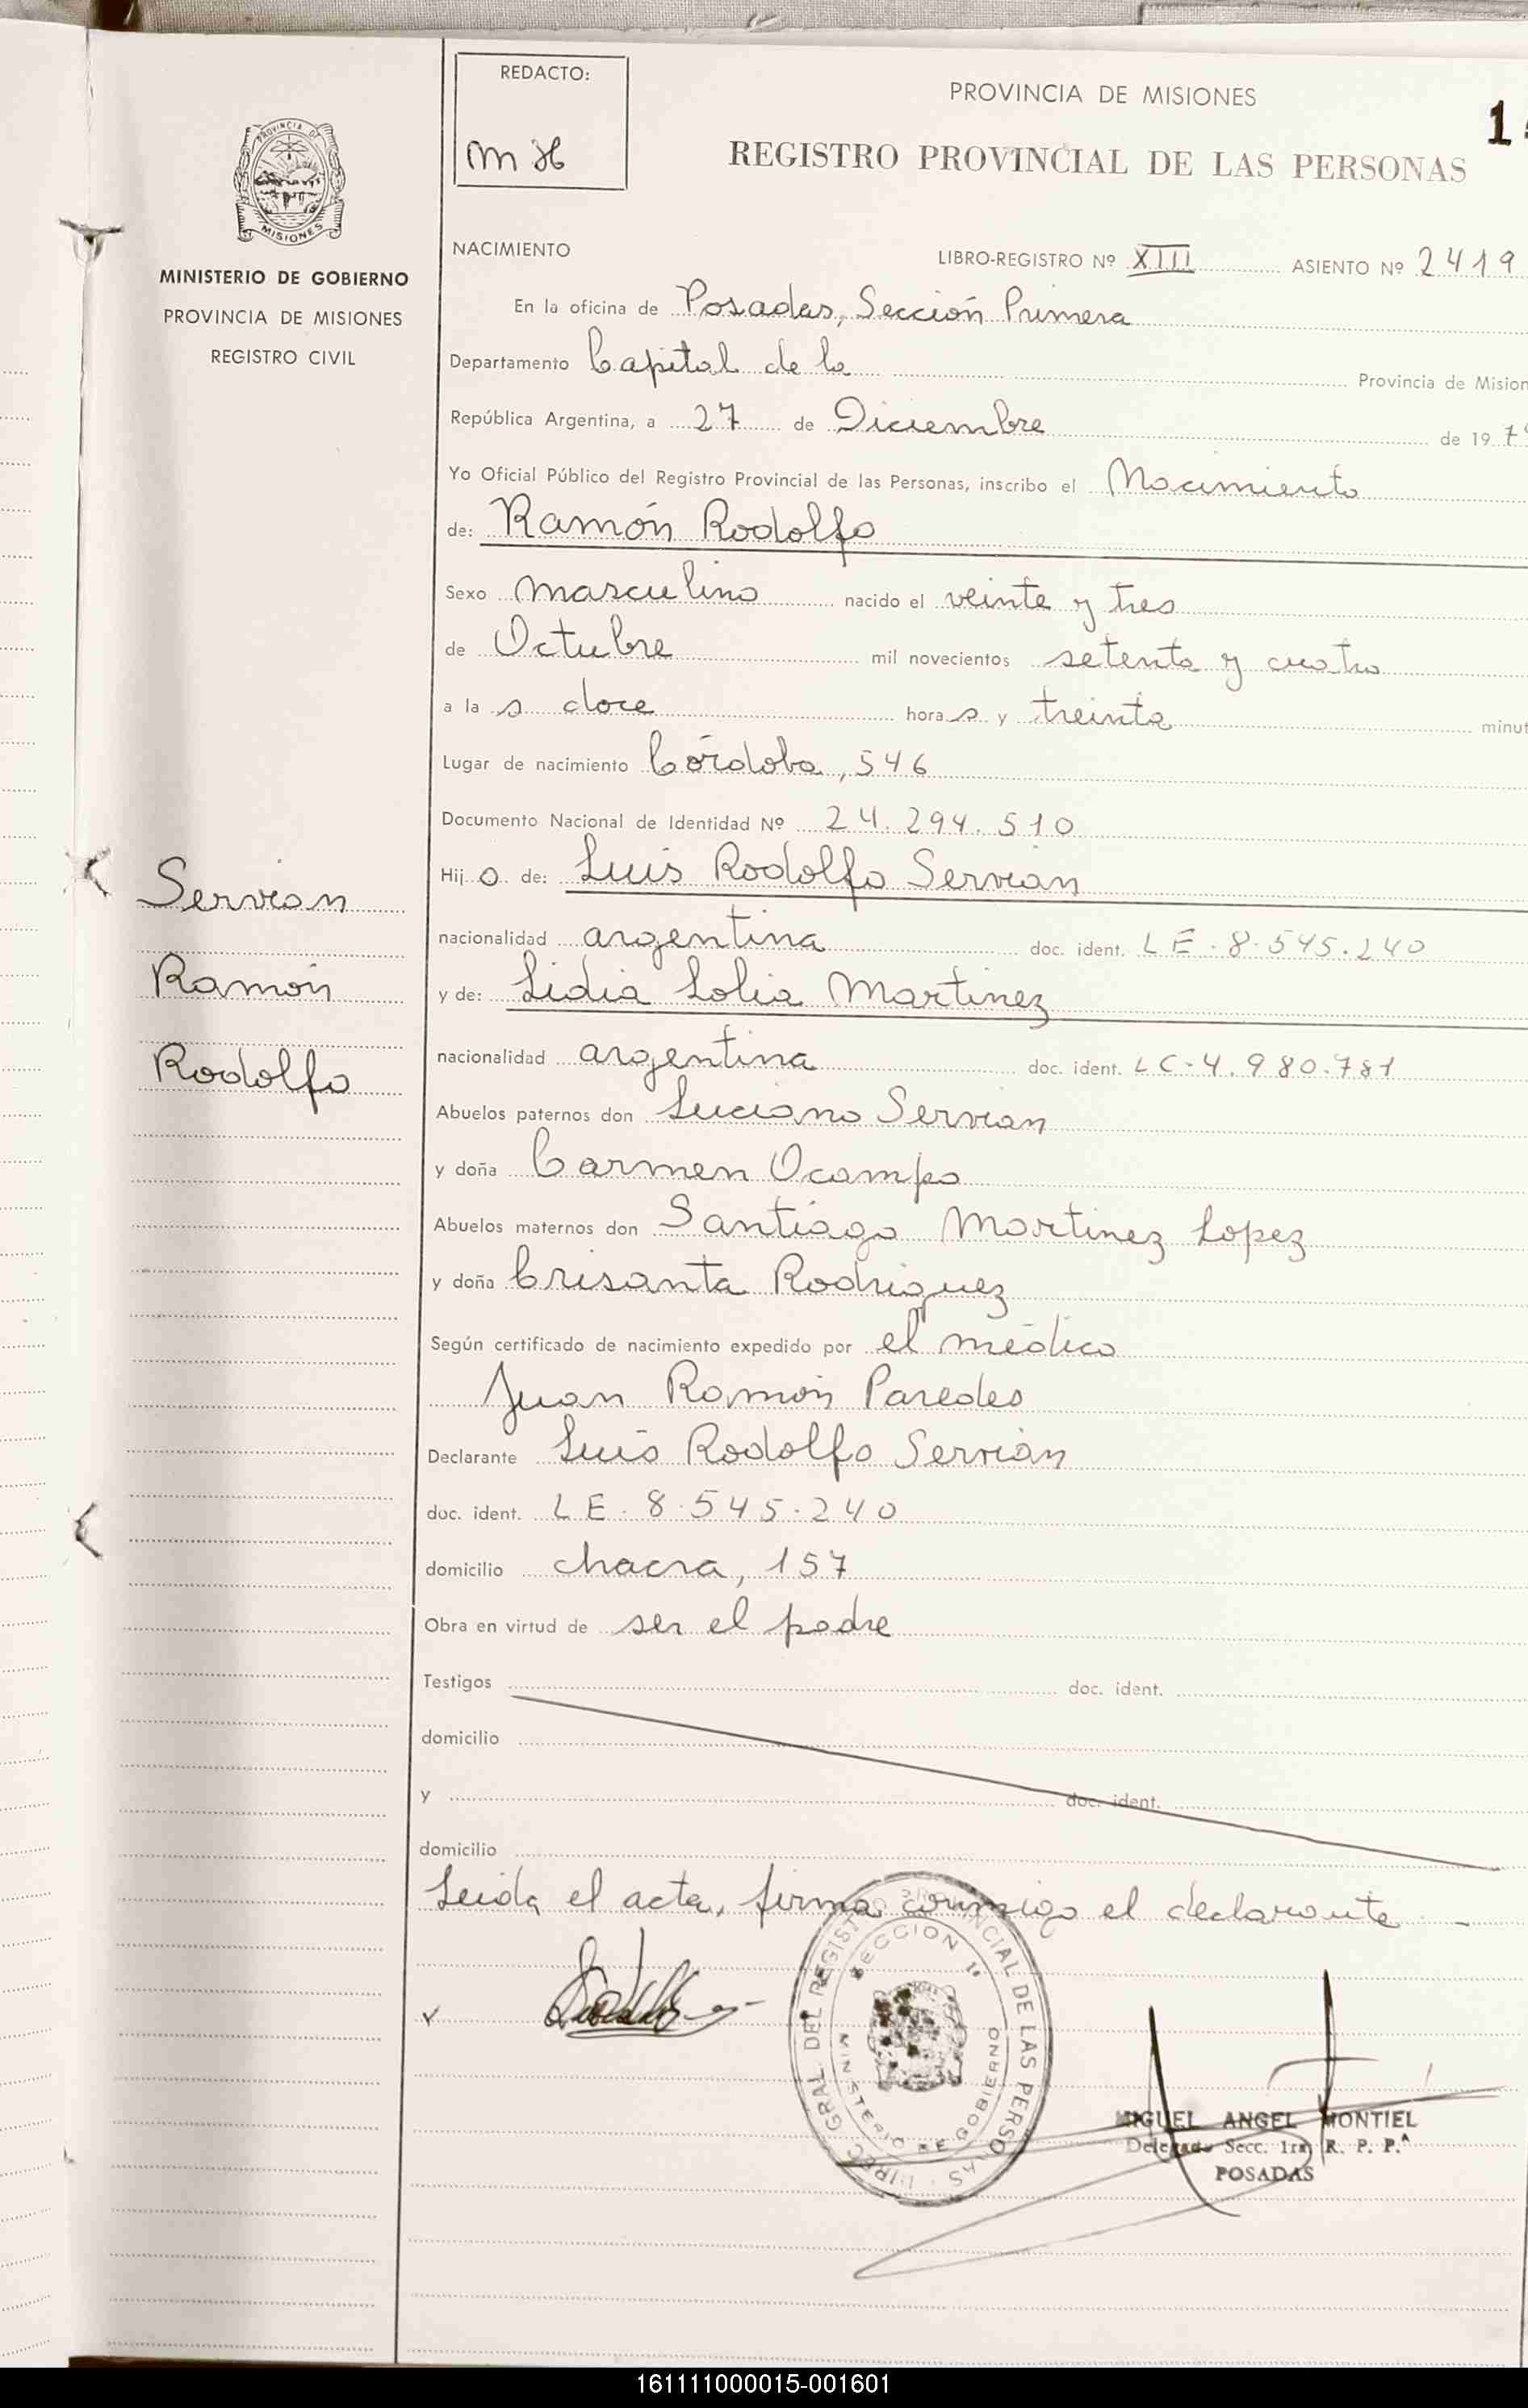 REDACTO:
m H
PROVINCIA DE MISIONES
REGISTRO PROVINCIAL DE LAS PERSONAS
PROVINCIA DE
MISIONES
MINISTERIO DE GOBIERNO
PROVINCIA DE MISIONES
REGISTRO CIVIL
NACIMIENTO LIBRO-REGISTRO Nº XIII ASIENTO Nº 2419
En la oficina de Posadas, Sección Primera
Departamento Capital de la Provincia de Mision
República Argentina, a 27 de Diciembre de 197
Yo Oficial Público del Registro Provincial de las Personas, inscribo el Nacimiento
de: Ramón Rodolfo
Sexo masculino nacido el veinte y tres
de Octubre mil novecientos setenta y cuatro
a la s doce hora s y treinta minut
Lugar de nacimiento Córdoba, 546
Documento Nacional de Identidad Nº 24.294.510
Hij o de: Luis Rodolfo Servian
nacionalidad argentina doc. ident. LE.8.545.240
y de: Lidia Lolia Martinez
nacionalidad argentina doc. ident. LC-4.980.781
Abuelos paternos don Luciano Servian
y doña Carmen Ocampo
Abuelos maternos don Santiago Martinez Lopez
y doña Crisanta Rodriguez
Según certificado de nacimiento expedido por el médico
Juan Ramón Paredes
Declarante Luis Rodolfo Servián
doc. ident. LE.8.545.240
domicilio chacra, 157
Obra en virtud de ser el padre
Testigos doc. ident.
domicilio
y doc. ident.
domicilio
Leida el acta, firma conmigo el declarante
Servian
Ramón
Rodolfo
DIREC. GRAL. DEL REGISTRO PROVINCIAL DE LAS PERSONAS
SECCION 1ª
MINISTERIO DE GOBIERNO
MIGUEL ANGEL MONTIEL
Delegado Secc. 1ra R. P. P.ᴬ
POSADAS
161111000015-001601